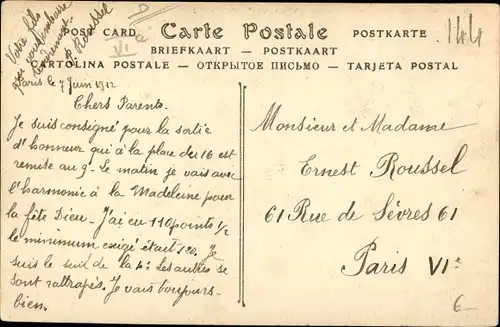 POST CARD Carte Postale POSTKARTE
BRIEFKAART — POSTKAART
CARTOLINA POSTALE — ОТКРЫТОЕ ПИСЬМО — TARJETA POSTAL
144
VIe
Paris le 7 Juin 1912
Chers Parents.
Je suis consigné pour la sortie
d'honneur qui à la place du 16 est
remise au 9. Le matin je vais avec
l'harmonie à la Madeleine pour
la fête Dieu. J'ai eu 110 points 1/2
le minimum exigé était 120. Je
suis le seul de la 4e. Les autres se
sont rattrapés. Je vais toujours
bien.
Votre fils
qui vous embrasse
tendrement
Roussel
Monsieur et Madame
Ernest Roussel
61 Rue de Sèvres 61
Paris VIe
6